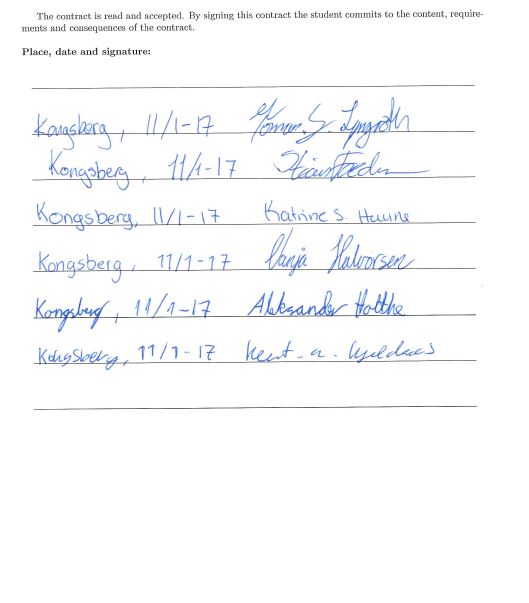 The contract is read and accepted. By signing this contract the student commits to the content, require-
ments and consequences of the contract.
Place, date and signature:
Kongsberg, 11/1-17
Kongsberg, 11/1-17
Kongsberg, 11/1-17 Katrine S. Haune
Kongsberg, 11/1-17 Vanja Halvorsen
Kongsberg, 11/1-17 Aleksander Holthe
Kongsberg, 11/1-17 Kent